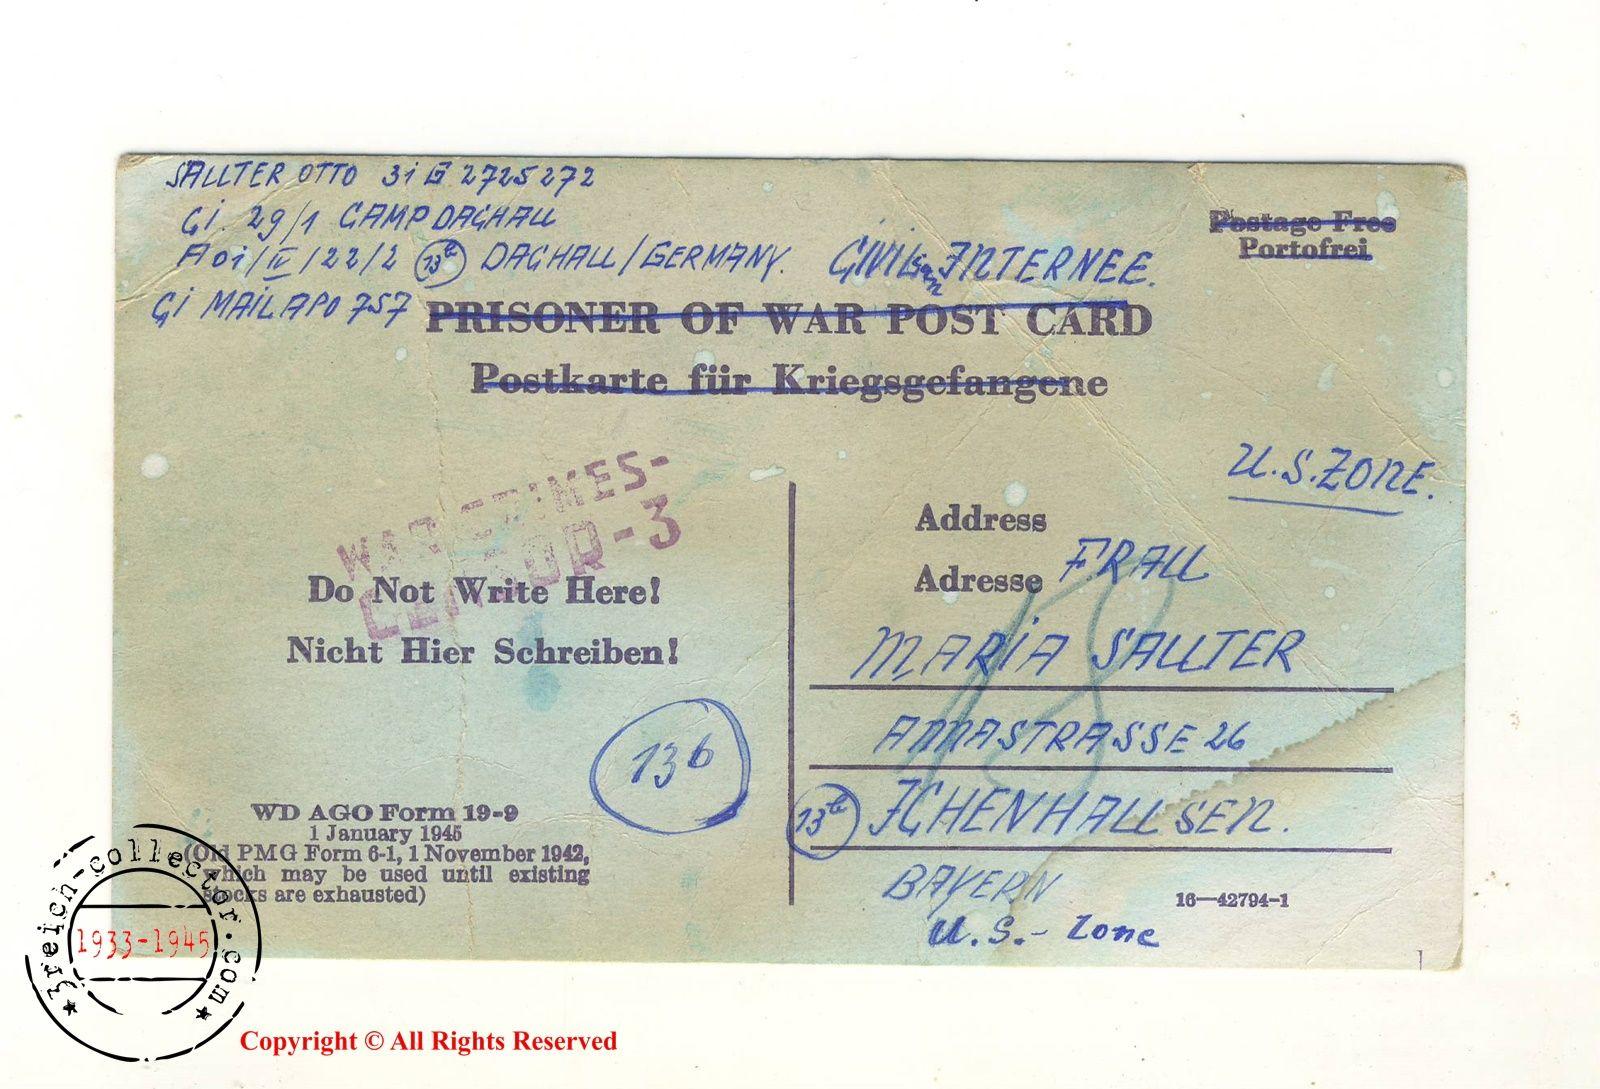 SAUTER OTTO 31 G 2725272
Ci. 29/1 CAMP DACHAU
A01/II/22/2 13b DACHAU/GERMANY. CIVILian INTERNEE.
Ci MAIL APO 757
Postage Free
Portofrei
PRISONER OF WAR POST CARD
Postkarte für Kriegsgefangene
U.S. ZONE.
WAR CRIMES-
CENSOR-3
Do Not Write Here!
Nicht Hier Schreiben!
13b
WD AGO Form 19-9
1 January 1945
(Old PMG Form 6-1, 1 November 1942,
which may be used until existing
stocks are exhausted)
Address
Adresse FRAU
MARIA SAUTER
ANNASTRASSE 26
13b ICHENHAUSEN.
BAYERN
U.S.- Zone
16—42794-1
3reich-collector.com
1933-1945
Copyright © All Rights Reserved